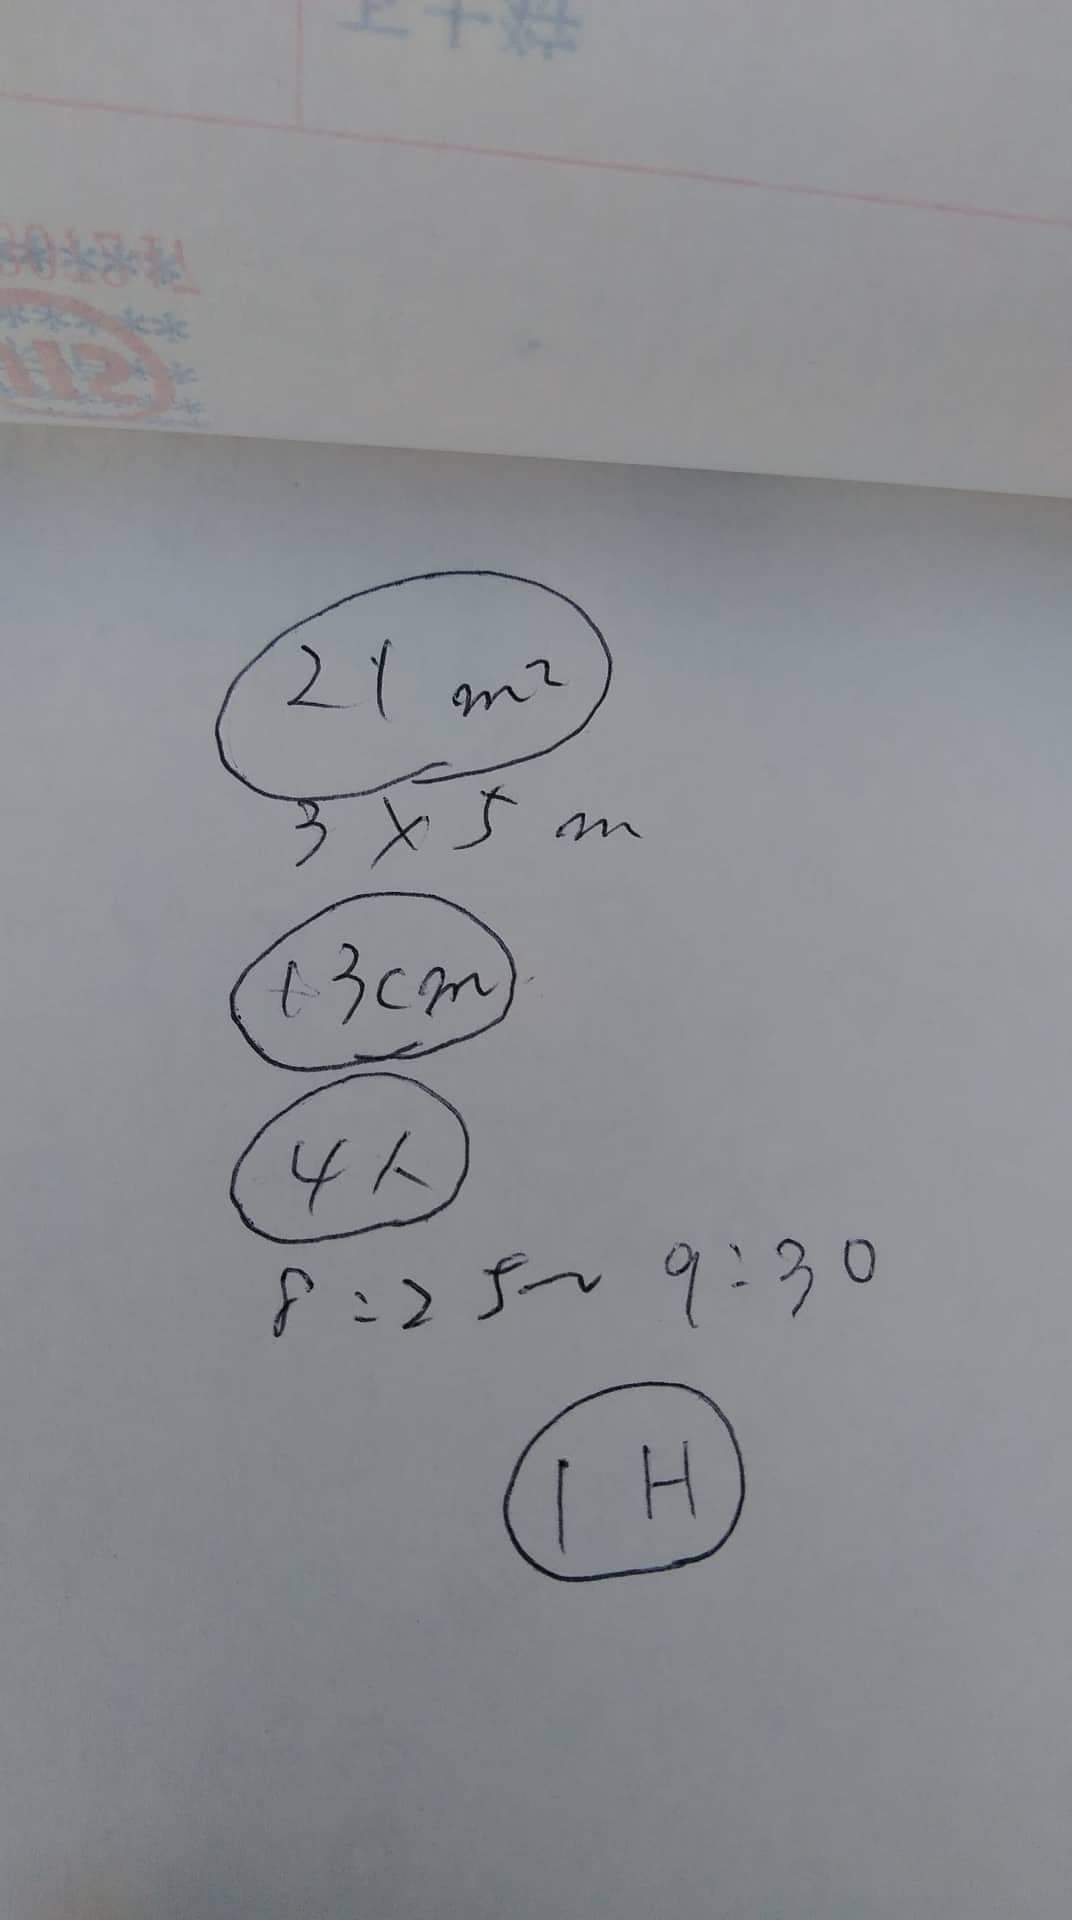 21 m²
3 X 5 m
+3cm
4人
8:25~ 9:30
1 H